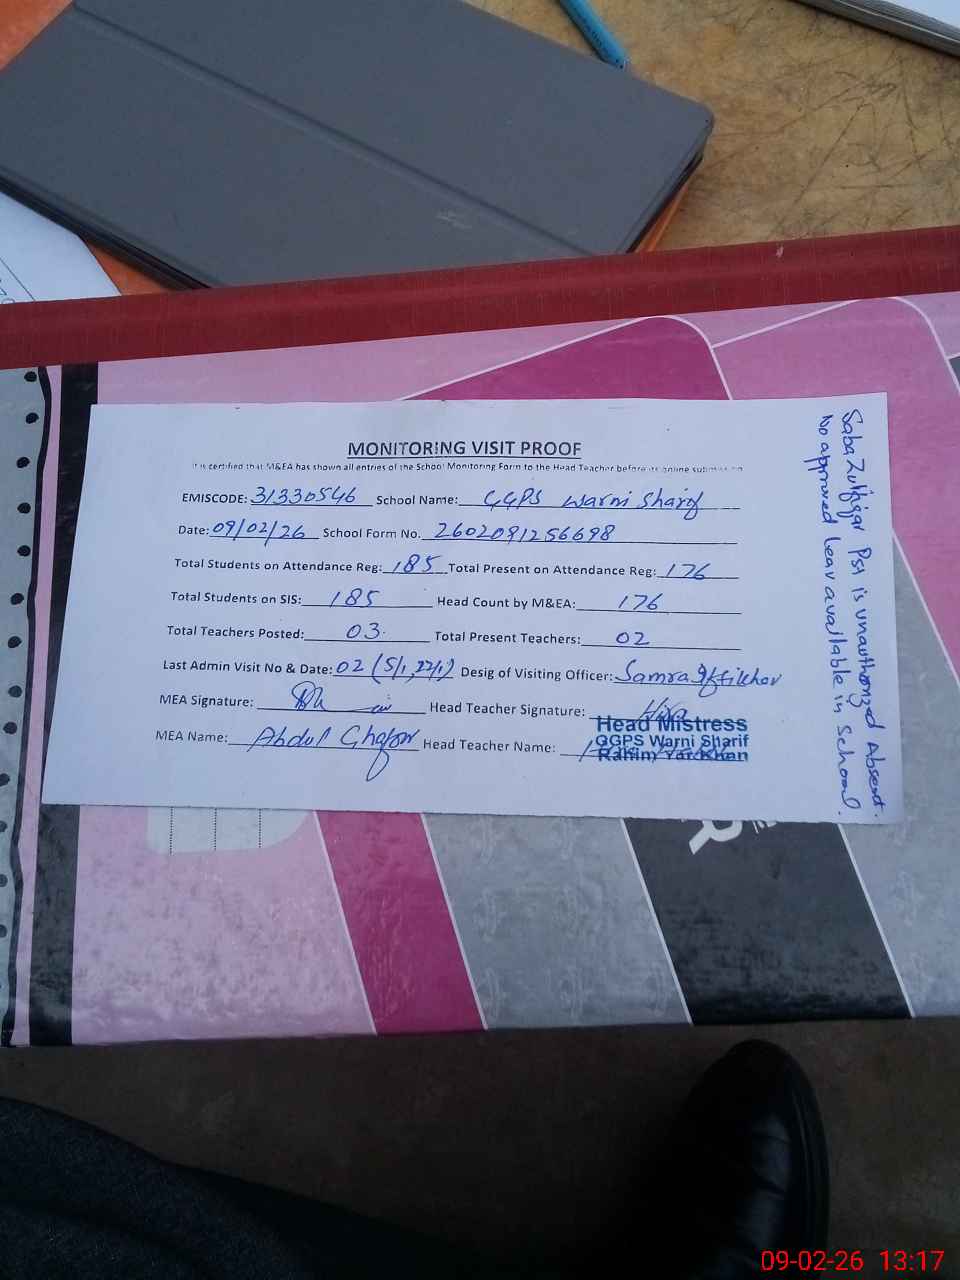 MONITORING VISIT PROOF
It is certified that M&EA has shown all entries of the School Monitoring Form to the Head Teacher before its online submission
EMISCODE: 31330546 School Name: GGPS Warni Sharif
Date: 09/02/26 School Form No. 2602091256698
Total Students on Attendance Reg: 185 Total Present on Attendance Reg: 176
Total Students on SIS: 185 Head Count by M&EA: 176
Total Teachers Posted: 03 Total Present Teachers: 02
Last Admin Visit No & Date: 02 (5/1, 22/1) Desig of Visiting Officer: Samra Iftikhar
MEA Signature: Head Teacher Signature: Hira
MEA Name: Abdul Ghafor Head Teacher Name:
Head Mistress
GGPS Warni Sharif
Rahim Yar Khan
Saba Zulfiqar PST is unauthorized Absent.
No approved leav available in School.
09-02-26 13:17